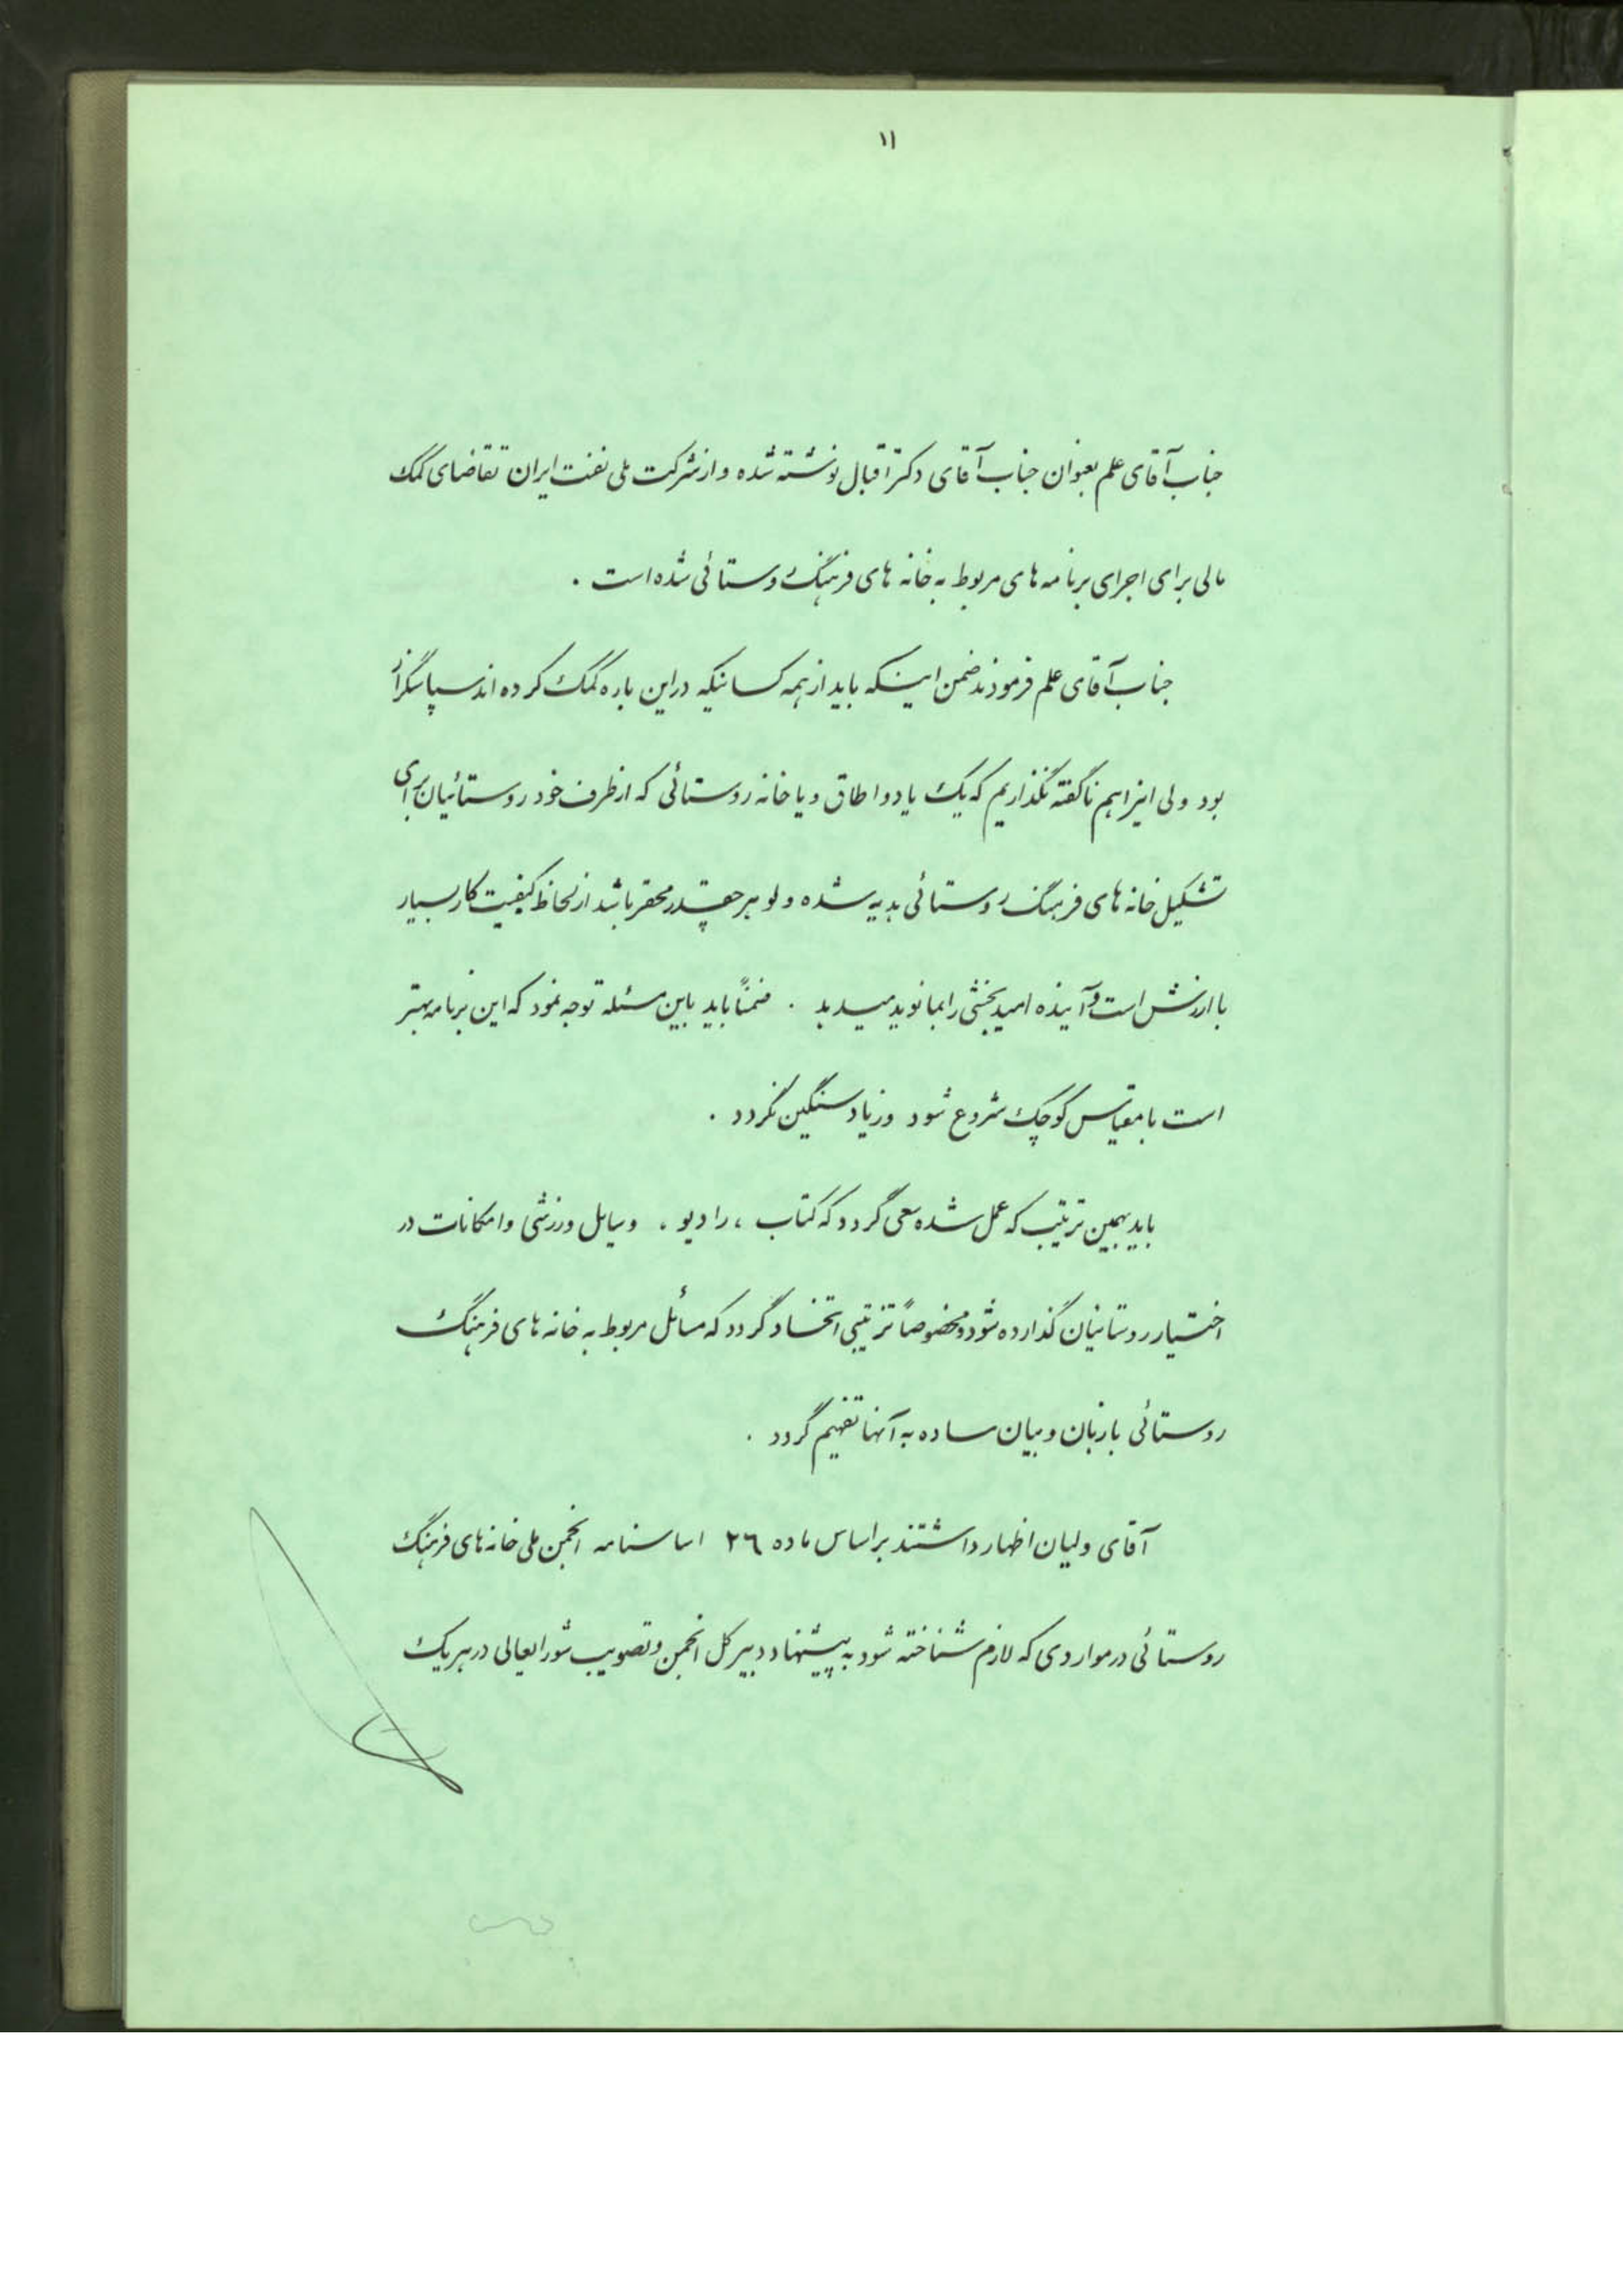 ۱۱
جناب آقای علم بعنوان جناب آقای دکتر اقبال نوشته شده و از شرکت ملی نفت ایران تقاضای کمک
مالی برای اجرای برنامه های مربوط به خانه های فرهنگ روستائی شده است .
جناب آقای علم فرمودند ضمن اینکه باید از همه کسانیکه در این باره کمک کرده اند سپاسگزار
بود ولی اینرا هم ناگفته نگذاریم که یک یا دو اطاق و یا خانه روستائی که از طرف خود روستائیان برای
تشکیل خانه های فرهنگ روستائی هدیه شده و لو هر چقدر محقر باشد از لحاظ کیفیت کار بسیار
با ارزش است و آینده امید بخشی را بما نوید میدهد . ضمناً باید باین مسئله توجه نمود که این برنامه بهتر
است با مقیاس کوچک شروع شود و زیاد سنگین نگردد .
باید بهمین ترتیب که عمل شده سعی گردد که کتاب ، رادیو ، وسایل ورزشی و امکانات در
اختیار روستائیان گذارده شود و مخصوصاً ترتیبی اتخاذ گردد که مسائل مربوط به خانه های فرهنگ
روستائی با زبان و بیان ساده به آنها تفهیم گردد .
آقای ولیان اظهار داشتند بر اساس ماده ۲۶ اساسنامه انجمن ملی خانه های فرهنگ
روستائی در مواردی که لازم شناخته شود به پیشنهاد دبیر کل انجمن و تصویب شورایعالی در هر یک